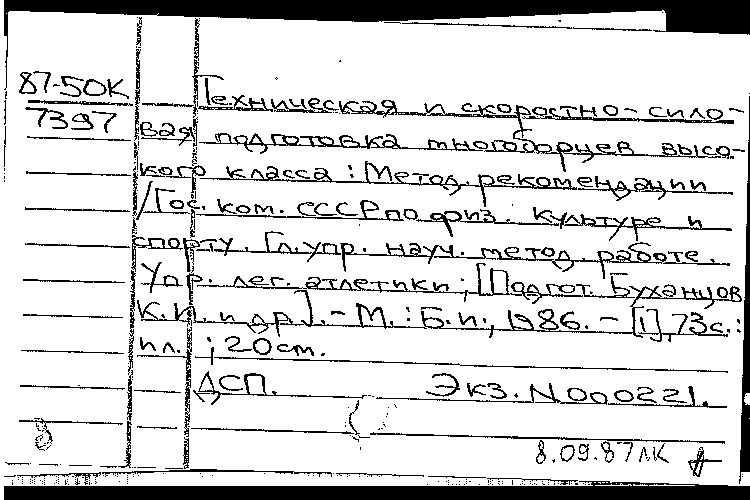 87-50К
7397
Техническая и скоростно-сило-
вая подготовка многоборцев высо-
кого класса : Метод. рекомендации
/Гос. ком. СССР по физ. культуре и
спорту. Гл. упр. науч. метод. работе.
Упр. лег. атлетики ; [Подгот. Буханцов
К.И. и др.]. - М. : Б.и., 1986. - [1], 73с. :
ил. ; 20 cm.
ДСП. Экз. N 000221.
8.09.87 ЛК